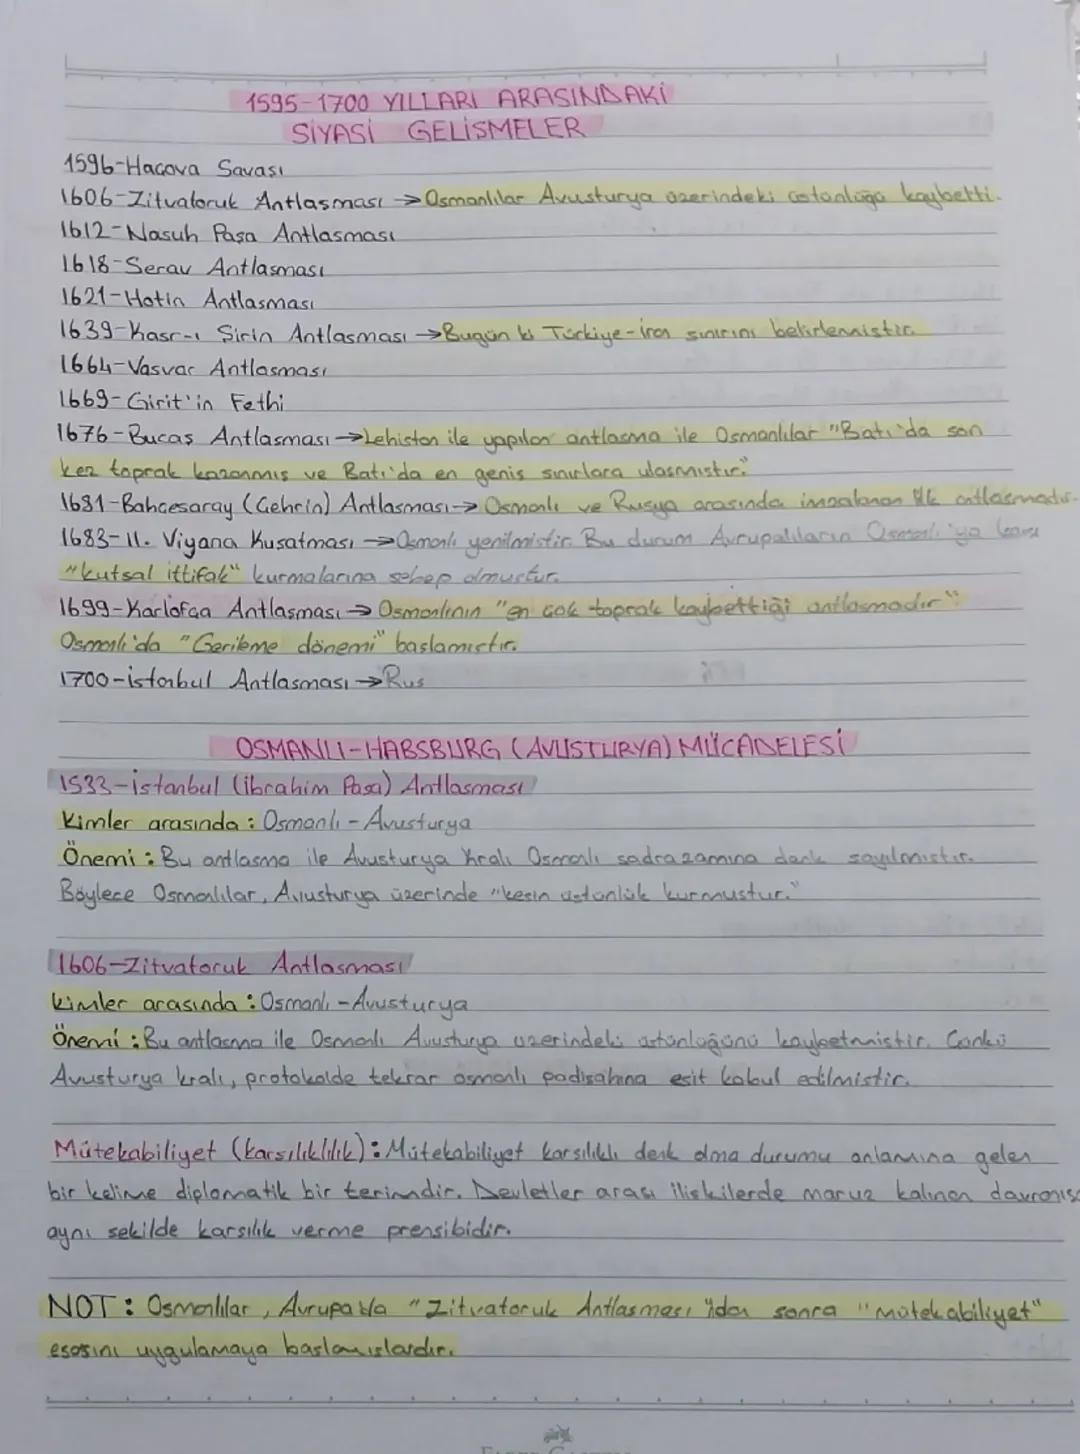 1595-1700 YILLARI ARASINDAKİ
SİYASİ GELİSMELER
1596-Haçova Savası
1606-Zitvatoruk Antlaşması → Osmanlılar Avusturya üzerindeki üstünlüğü kaybetti.
1612-Nasuh Paşa Antlasması
1618-Serav Antlasması
1621-Hotin Antlasması
1639-Kasr-ı Şirin Antlasması → Bugün ki Türkiye-İran sınırını belirlemistir.
1664-Vasvar Antlasması
1669-Girit'in Fethi
1676-Bucaş Antlaşması → Lehistan ile yapılan antlasma ile Osmanlılar "Batı'da son
kez toprak kazanmıs ve Batı'da en genis sınırlara ulasmıstır."
1681-Bahcesaray (Çehrin) Antlasması → Osmanlı ve Rusya arasında imzalanan ilk antlasmadır.
1683-II. Viyana Kusatması → Osmanlı yenilmistir. Bu durum Avrupalıların Osmanlı'ya karsı
"kutsal ittifak" kurmalarına sebep olmustur.
1699-Karlofça Antlasması → Osmanlının "en çok toprak kaybettiği antlasmadır"
Osmanlı'da "Gerileme dönemi" baslamıstır.
1700-İstanbul Antlasması → Rus
OSMANLI-HABSBURG (AVUSTURYA) MÜCADELESİ
1533-İstanbul (İbrahim Paşa) Antlasması
Kimler arasında : Osmanlı - Avusturya
Önemi : Bu antlasma ile Avusturya Kralı Osmanlı sadrazamına denk sayılmıstır.
Böylece Osmanlılar, Avusturya üzerinde "kesin üstünlük kurmustur."
1606-Zitvatoruk Antlasması
Kimler arasında : Osmanlı - Avusturya
Önemi : Bu antlasma ile Osmanlı Avusturya üzerindeki üstünlüğünü kaybetmistir. Çünkü
Avusturya kralı, protokolde tekrar osmanlı padisahına esit kabul edilmistir.
Mütekabiliyet (karsılıklılık) : Mütekabiliyet karsılıklı denk olma durumu anlamına gelen
bir kelime diplomatik bir terimdir. Devletler arası iliskilerde maruz kalınan davranısa
aynı sekilde karsılık verme prensibidir.
NOT : Osmanlılar, Avrupa'yla "Zitvatoruk Antlasması"ndan sonra "mütekabiliyet"
esasını uygulamaya baslamıslardır.